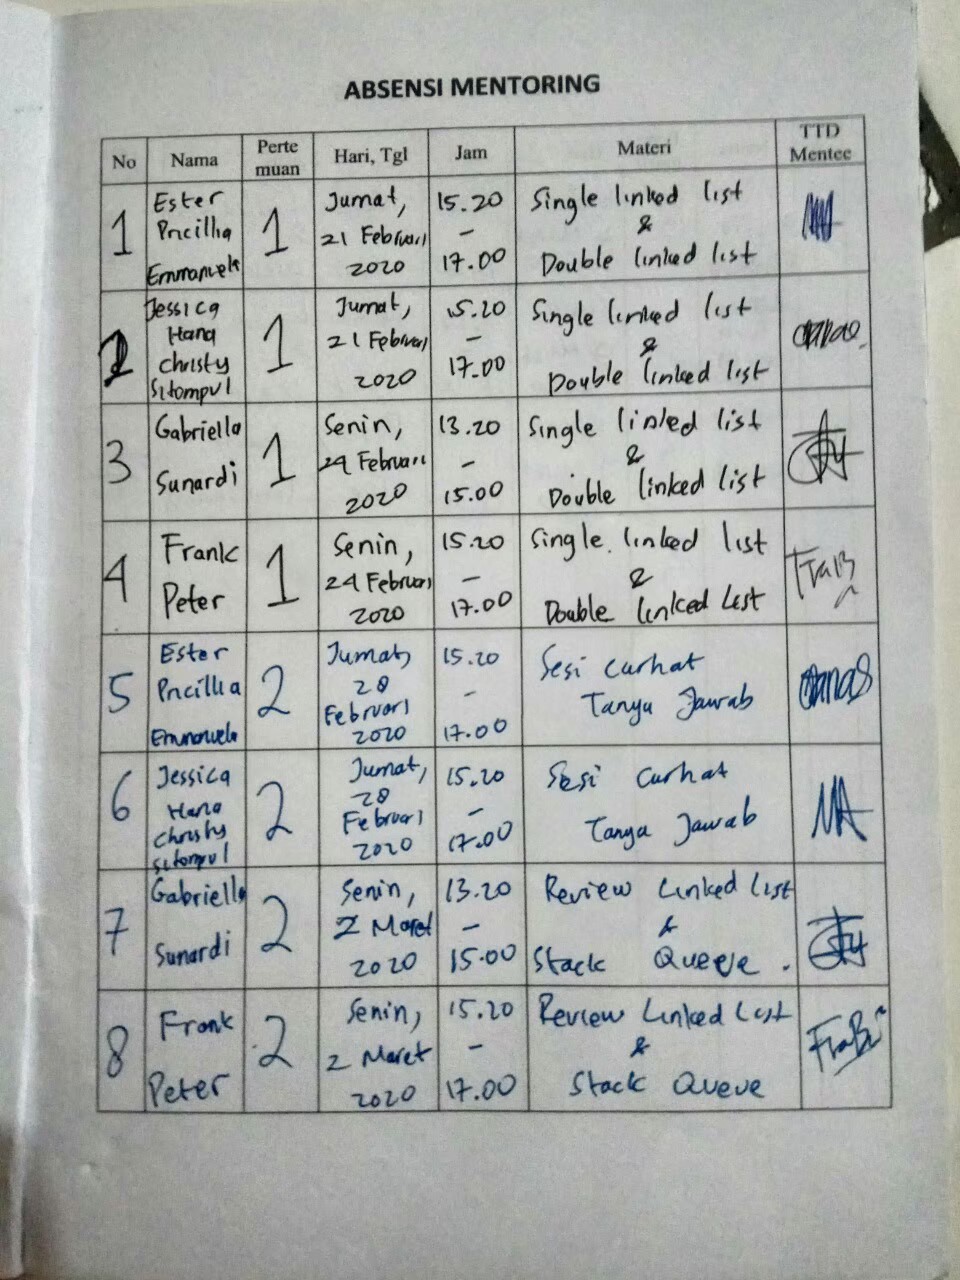 ABSENSI MENTORING
No Nama Perte muan Hari, Tgl Jam Materi TTD Mentee
1 Ester Pricillia Emmanuela 1 Jumat, 21 Februari 2020 15.20 - 17.00 Single linked list & Double linked list
2 Jessica Hana Christy Sitompul 1 Jumat, 21 Februari 2020 15.20 - 17.00 Single linked list & Double linked list
3 Gabriella Sunardi 1 Senin, 24 Februari 2020 13.20 - 15.00 Single linked list & Double linked list
4 Frank Peter 1 Senin, 24 Februari 2020 15.20 - 17.00 Single linked list & Double linked List
5 Ester Pricillia Emmanuela 2 Jumat, 28 Februari 2020 15.20 - 17.00 Sesi curhat Tanya Jawab
6 Jessica Hana Christy Sitompul 2 Jumat, 28 Februari 2020 15.20 - 17.00 Sesi curhat Tanya Jawab
7 Gabriella Sunardi 2 Senin, 2 Maret 2020 13.20 - 15.00 Review Linked list & Stack Queue.
8 Frank Peter 2 Senin, 2 Maret 2020 15.20 - 17.00 Review Linked List & Stack Queue